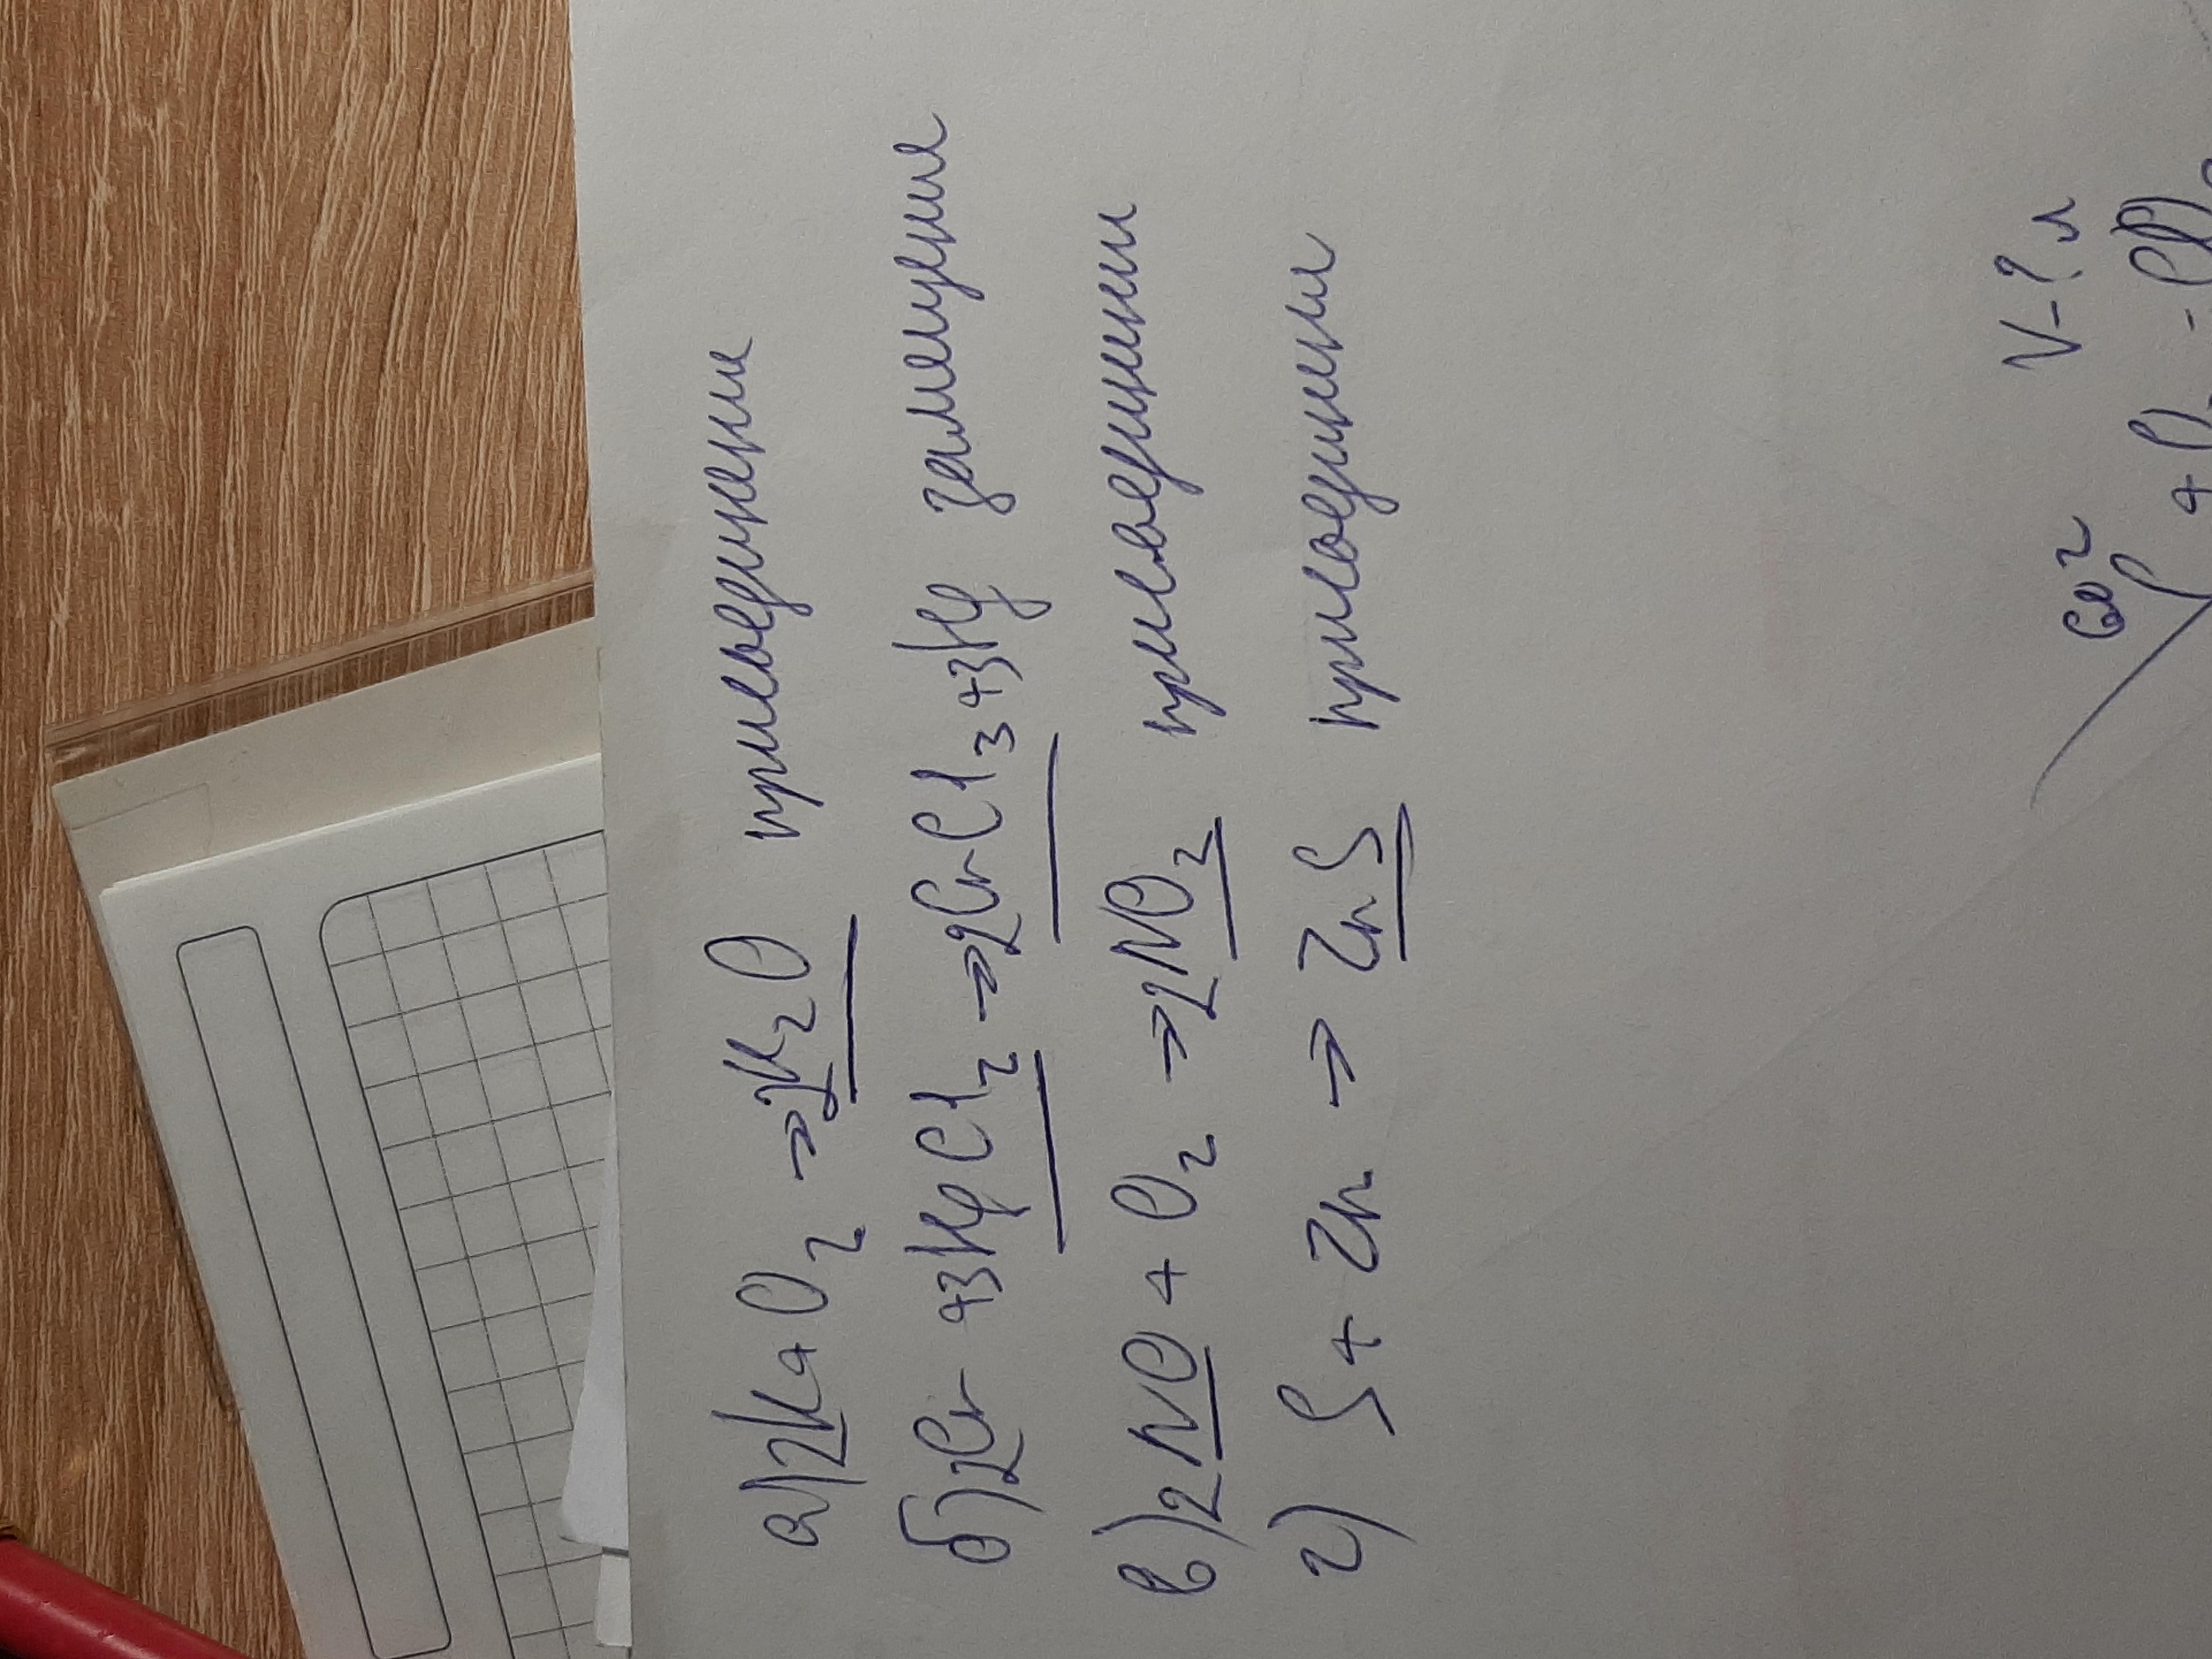 а) 2K + O₂ → 2K₂O присоединени
б) 2Cr + 3HgCl₂ → 2CrCl₃ + 3Hg замещения
в) 2NO + O₂ → 2NO₂ присоединени
г) S + Zn → ZnS присоединени
60 г V-? л